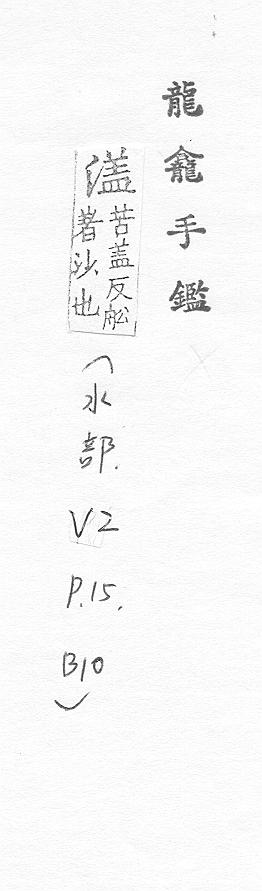 龍龕手鑑
濭苦蓋反舩
著沙也
(水部.
V2
P.15.
B10
)